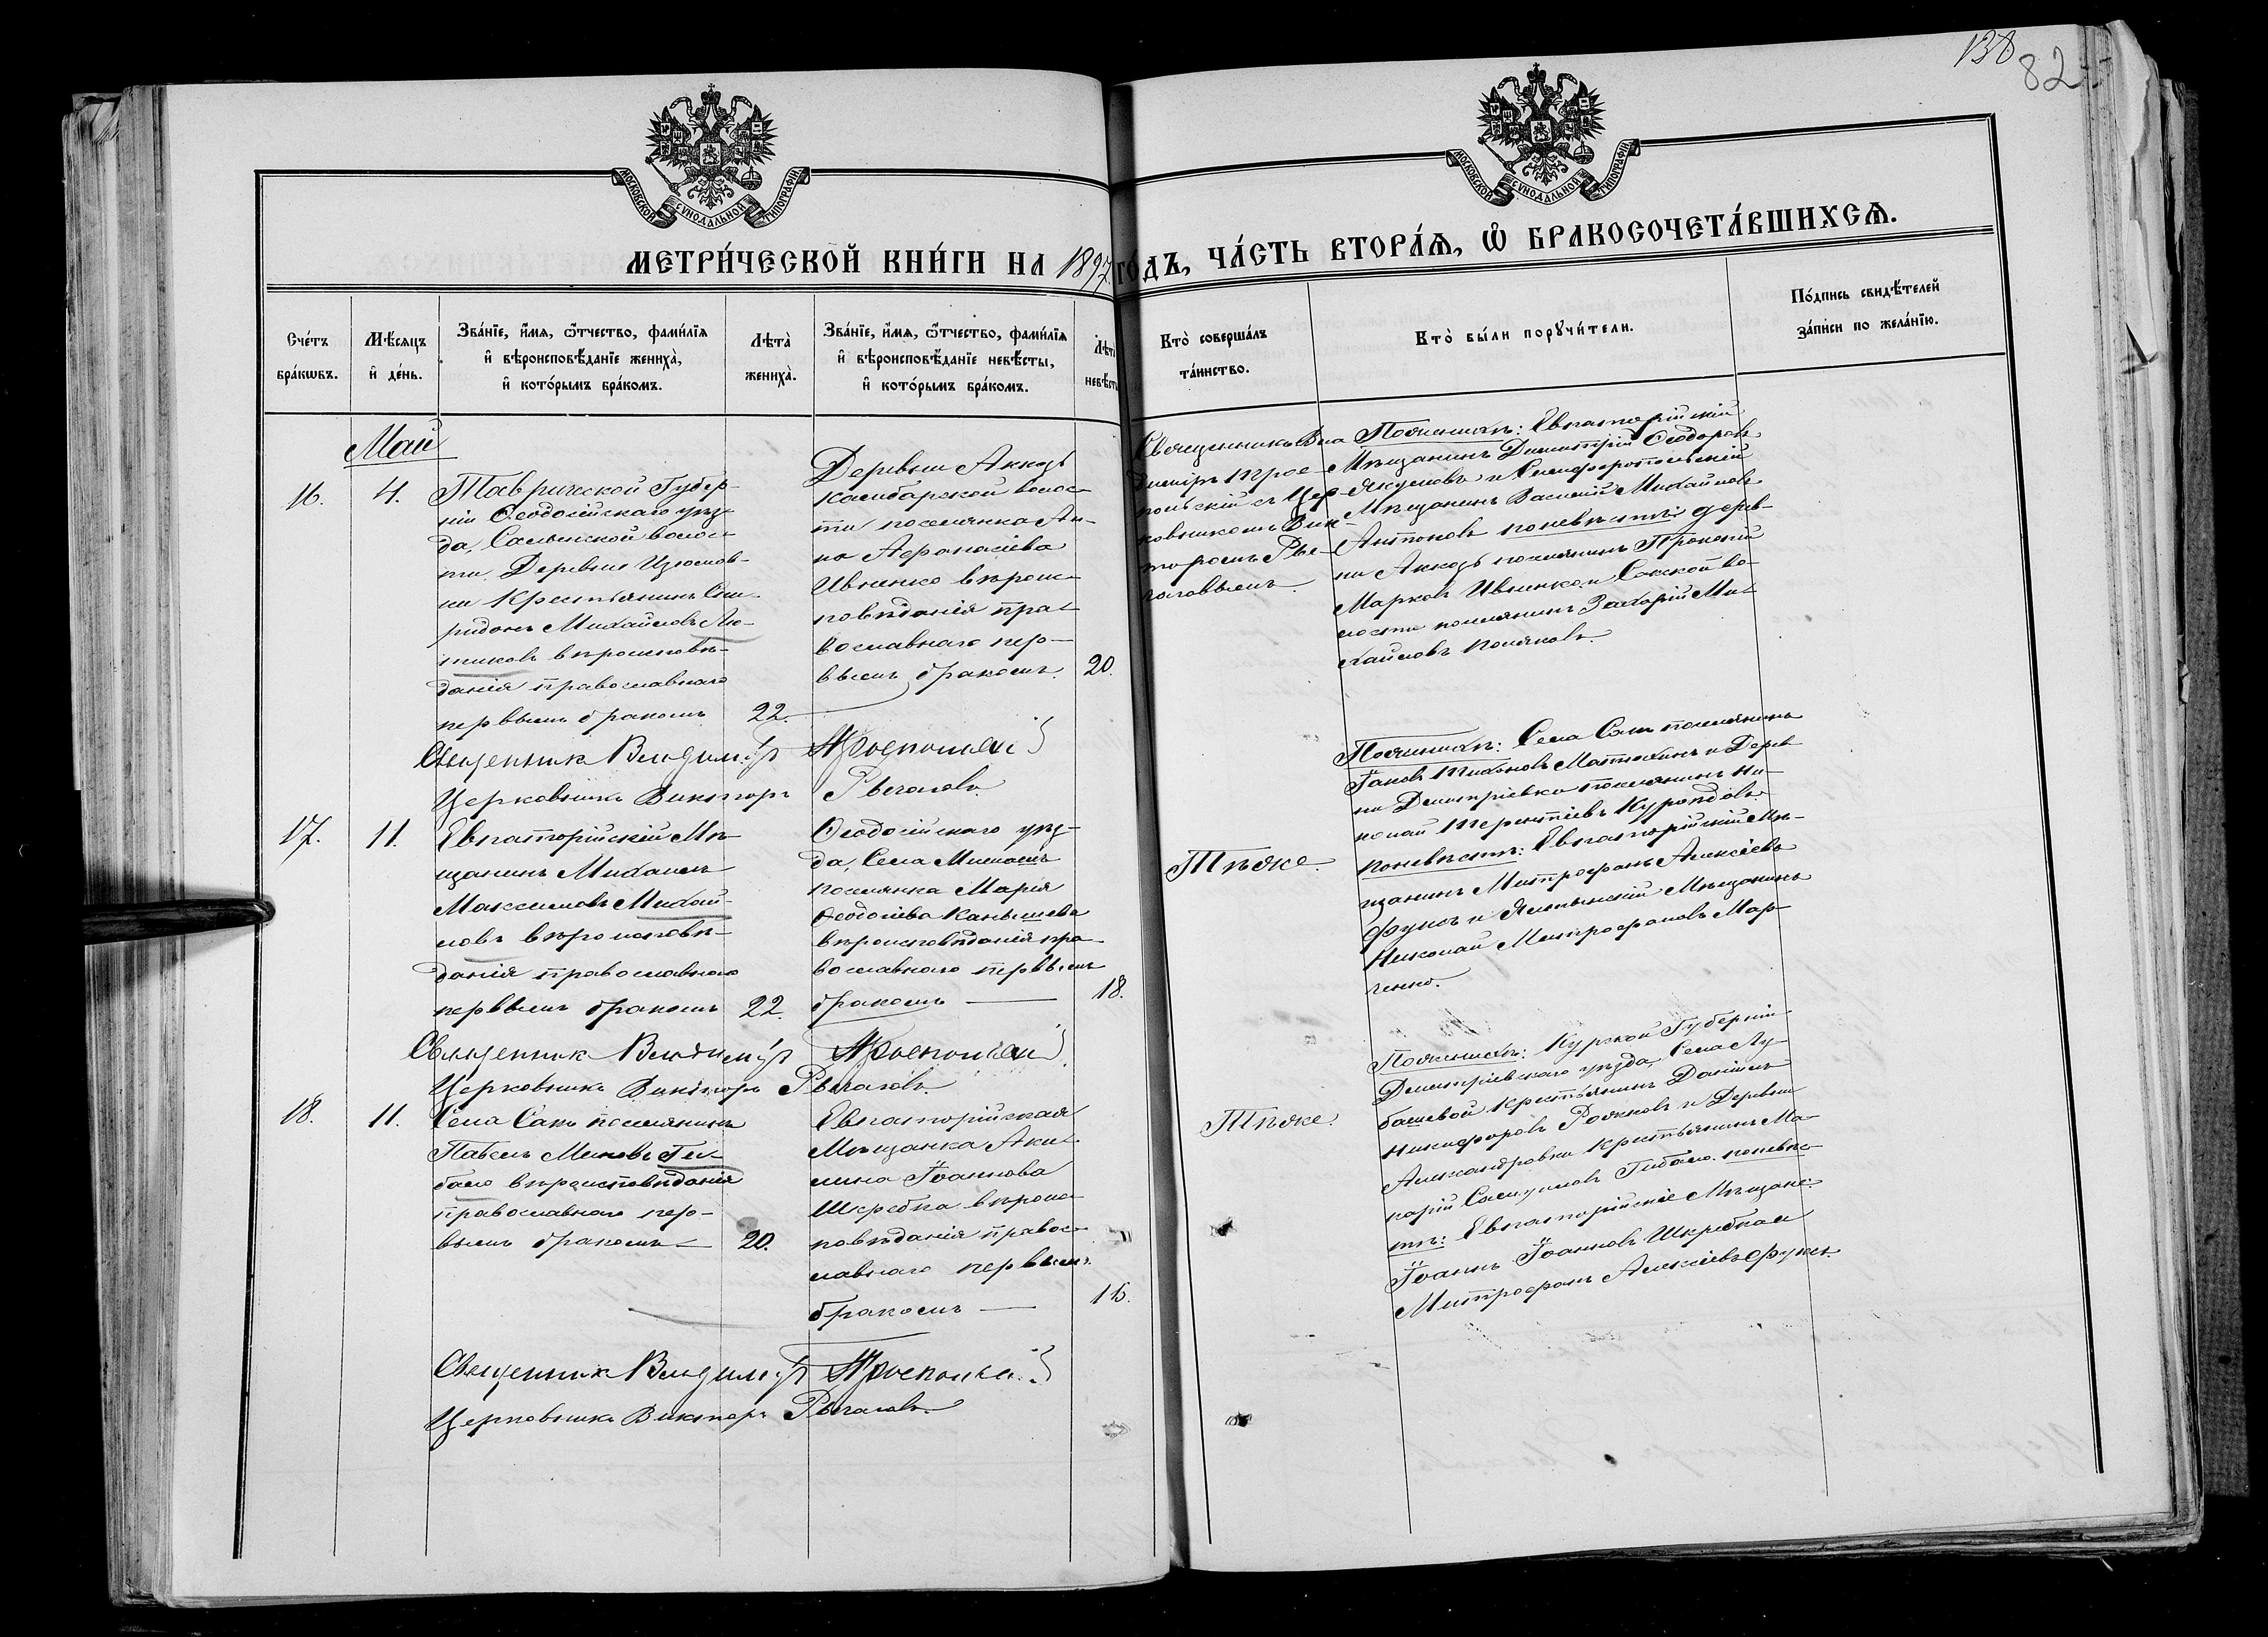 138
82
МОСКОВСКОЙ СѴНОДАЛЬНОЙ ТИПОГРАФІИ
МОСКОВСКОЙ СѴНОДАЛЬНОЙ ТИПОГРАФІИ
МЕТРИ́ЧЕСКОЙ КНИ́ГИ НА 1897 ГО́ДЪ, ЧА́СТЬ ВТОРА́Ѧ, Ѽ БРАКОСОЧЕТА́ВШИХСѦ.
Сче́тъ
бра́кѡвъ.
Мѣ́сяцъ
и҆ де́нь.
Зва́нїе, и҆́мя, ѻ҆́тчество, фами́лїя
и҆ вѣроисповѣ́данїе жениха̀,
и҆ кото́рымъ бра́комъ.
Лѣта̀
жениха̀.
Зва́нїе, и҆́мя, ѻ҆́тчество, фами́лїя
и҆ вѣроисповѣ́данїе невѣ́сты,
и҆ кото́рымъ бра́комъ.
Лѣта
невѣсты
Кто̀ соверша́лъ
та́инство.
Кто̀ бы́ли порꙋчи́тели.
По́дпись свидѣ́телей
за́писи по жела́нїю.
Май
16.
4.
Таврической Губер-
ніи Ѳеодосійскаго уѣз-
да, Салынской волос-
ти Деревни Изюмов-
ки Крестьянинъ Спи-
ридонъ Михайловъ Лю-
тиковъ вѣроисповѣ-
данія православнаго
первымъ бракомъ
22.
Деревни Аккозъ
Камбарской волос-
ти поселянка Ан-
на Аѳанасіева
Ивненко вѣроис-
повѣданія пра-
вославнаго пер-
вымъ бракомъ.
20.
Священникъ Вла
диміръ Трос-
польскій съ Цер-
ковникомъ Вик-
торомъ Ры-
чаговымъ.
По женихѣ: Евпаторійскій
Мѣщанинъ Димитрій Ѳеодоровъ
и Симферопольскій
Мѣщанинъ Василій Михайловъ
Антоновъ по невѣстѣ: дерев-
ни Аккозъ поселянинъ Прокопій
Марковъ Ивненко и Сакской во-
лости поселянинъ Захарій Ми-
хайловъ Поляковъ.
Священникъ Владиміръ Троспольскій
Церковникъ Викторъ Рычаговъ
17.
11.
Евпаторійскій Мѣ-
щанинъ Михаилъ
Максимовъ Михай-
ловъ вѣроисповѣ-
данія православнаго
первымъ бракомъ
22.
Ѳеодосійскаго уѣз-
да, Села
поселянка Марія
Ѳеодосіева Канышева
вѣроисповѣданія пра-
вославнаго первымъ
бракомъ
18.
Тѣ же.
По женихѣ: Села Сакъ поселянинъ
Іаковъ Тихоновъ Матюхинъ и Дерев-
ни Димитріевки поселянинъ Ни-
колай Терентіевъ
по невѣстѣ: Евпаторійскій Мѣ-
щанинъ Митрофанъ Алексіевъ
Фуксъ и Ялтынскій Мѣщанинъ
Николай Митрофановъ Мар-
ченко.
Священникъ Владиміръ Троспольскій
Церковникъ Викторъ Рычаговъ
18.
11.
Села Сакъ поселянинъ
Павелъ Ги-
бало вѣроисповѣданія
православнаго пер-
вымъ бракомъ
20.
Евпаторійская
Мѣщанка Аки-
лина Іоаннова
Шкребка вѣроис-
повѣданія правос-
лавнаго первымъ
бракомъ
16.
Тѣ же.
По женихѣ: Курской Губерніи
Димитріевскаго уѣзда, Села Лу-
башевой Крестьянинъ Даніилъ
Никифоровъ и Деревни
Александровки Крестьянинъ Ма-
карій Гибало. по невѣс-
тѣ: Евпаторійскіе Мѣщане
Іоаннъ Іоанновъ Шкребка и
Митрофанъ Алексіевъ Фуксъ.
Священникъ Владиміръ Троспольскій
Церковникъ Викторъ Рычаговъ